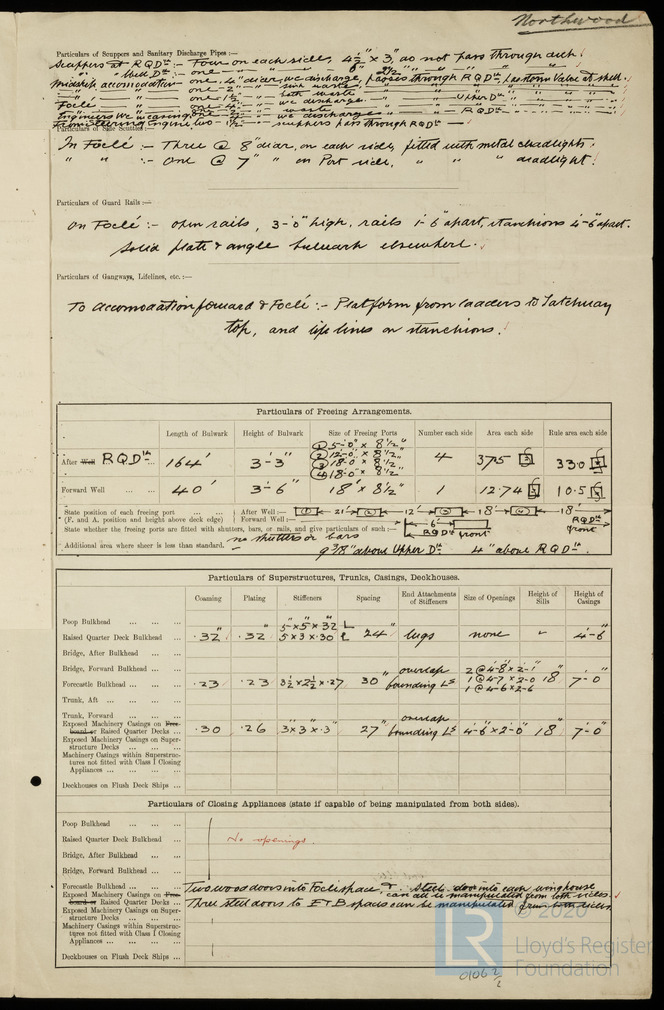 Northwood
Particulars of Scuppers and Sanitary Discharge Pipes :—
Scuppers at RQDk :- Four on each side, 4½" x 3", do not pass through deck.
Midship accomodation one, 4" diar, wc discharge, passes through RQDk, has storm valve at shell.
Foclé
Particulars of Side Scuttles :—
In Foclé :- Three @ 8" diar, on each side, fitted with metal deadlights.
" " :- One @ 7" " on Port side, " " deadlight.
Particulars of Guard Rails :—
On Foclé :- open rails, 3'-0" high, rails 1'-6" apart, stanchions 4'-6" apart.
Solid plate & angle bulwark elsewhere.
Particulars of Gangways, Lifelines, etc. :—
To accomodation forward & Foclé :- Platform from ladders to hatchway
top, and life lines on stanchions.
Particulars of Freeing Arrangements.
Length of Bulwark Height of Bulwark Size of Freeing Ports Number each side Area each side Rule area each side
After Well RQDk ... 164' 3'-3" ① 5'-0" x 8½" ② 12'-0" x 8½" ③ 18'-0" x 8½" ④ 18'-0" x 8½" 4 37.5 33.0
Forward Well ... ... 40' 3'-6" 18' x 8½" 1 12.74 10.5
State position of each freeing port ... ... ... After Well :— ① 21' ② 12' ③ 18' ④ 18'
(F. and A. position and height above deck edge) Forward Well :— 6' RQDk front RQDk front
State whether the freeing ports are fitted with shutters, bars, or rails, and give particulars of such :— no shutters or bars
Additional area where sheer is less than standard. — 9 3/8" above Upper Dk 4" above RQDk.
Particulars of Superstructures, Trunks, Casings, Deckhouses.
Coaming Plating Stiffeners Spacing End Attachments of Stiffeners Size of Openings Height of Sills Height of Casings
Poop Bulkhead ... ... ...
Raised Quarter Deck Bulkhead ... .32" .32 5" x 5" x .32 5 x 3 x .30 24" lugs none - 4'-6"
Bridge, After Bulkhead ... ...
Bridge, Forward Bulkhead ...
Forecastle Bulkhead ... ... .23 .23 3½ x 2½ x .27 30" overlap bounding Ls 2 @ 4'-8 x 2'-1" 1 @ 4-7 x 2-0 1 @ 4-6 x 2-6 18" 7'-0"
Trunk, Aft ... ... ...
Trunk, Forward ... ... ...
Exposed Machinery Casings on Free-
board or Raised Quarter Decks ... .30 .26 3" x 3" x .3" 27" overlap bounding Ls 4'-6" x 2'-0" 18" 7'-0"
Exposed Machinery Casings on Super-
structure Decks ... ... ...
Machinery Casings within Superstruc-
tures not fitted with Class I Closing
Appliances ... ... ...
Deckhouses on Flush Deck Ships ...
Particulars of Closing Appliances (state if capable of being manipulated from both sides).
Poop Bulkhead ... ... ...
Raised Quarter Deck Bulkhead ... No openings.
Bridge, After Bulkhead ... ...
Bridge, Forward Bulkhead ...
Forecastle Bulkhead ... ... Two wood doors into Foclé space, & steel door into each winghouse
can all be manipulated from both sides.
Exposed Machinery Casings on Free-
board or Raised Quarter Decks ... Three steel doors to E & B spaces can be manipulated from both sides.
Exposed Machinery Casings on Super-
structure Decks ... ... ...
Machinery Casings within Superstruc-
tures not fitted with Class I Closing
Appliances ... ... ...
Deckhouses on Flush Deck Ships ...
LR
© 2020
Lloyd's Register
Foundation
0106 2/2